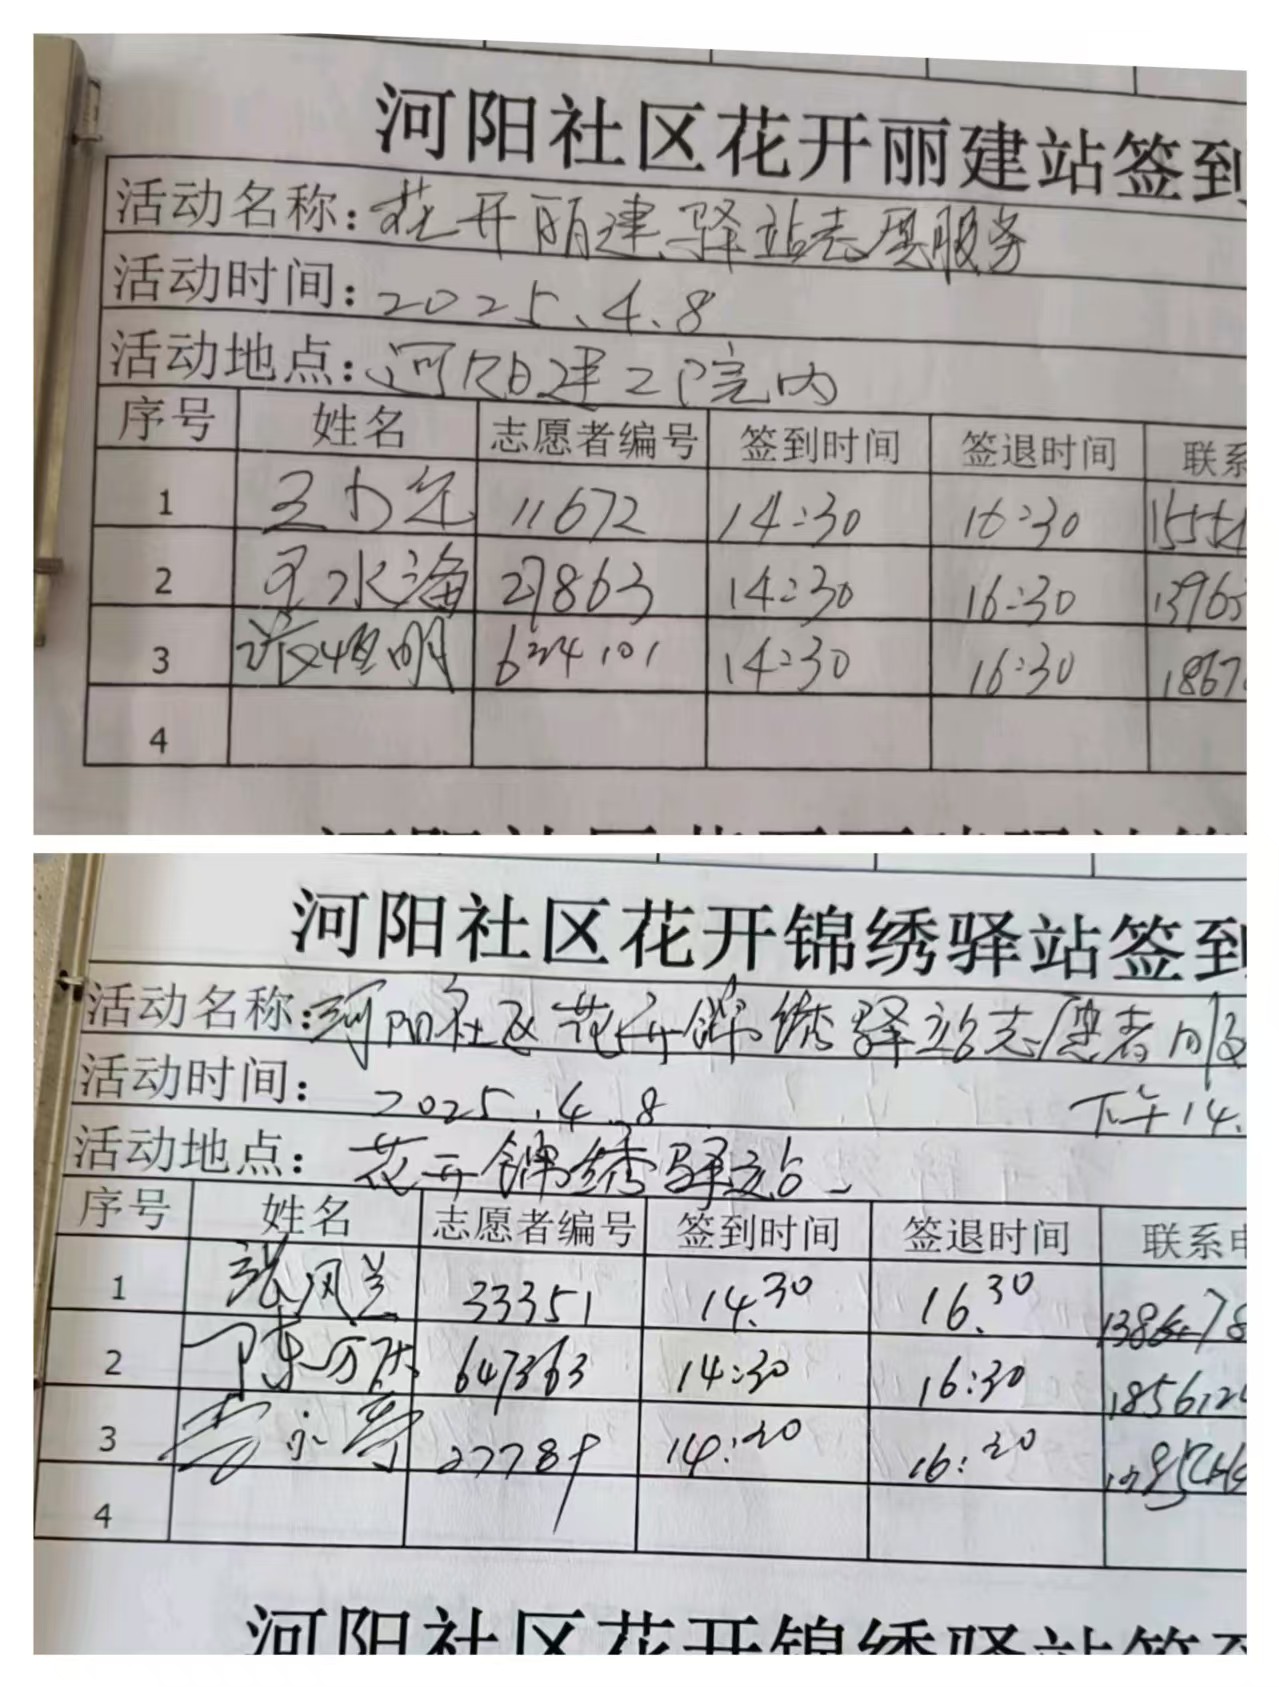 河阳社区花开丽建站签到
活动名称:花开丽建驿站志愿服务
活动时间:2025.4.8
活动地点:河阳建工院内
序号 姓名 志愿者编号 签到时间 签退时间 联系
1 11672 14:30 16:30
2 水海 27863 14:30 16:30 13963
3 明 624101 14:30 16:30 1867
4
河阳社区花开锦绣驿站签到
活动名称:河阳社区花开锦绣驿站志愿者服
活动时间: 2025.4.8 下午14.
活动地点: 花开锦绣驿站
序号 姓名 志愿者编号 签到时间 签退时间 联系电
1 张风兰 33351 14.30 16.30
2 陈 647363 14:30 16:30 185612
3 27789 14:30 16:30
4
河阳社区花开锦绣驿站签到